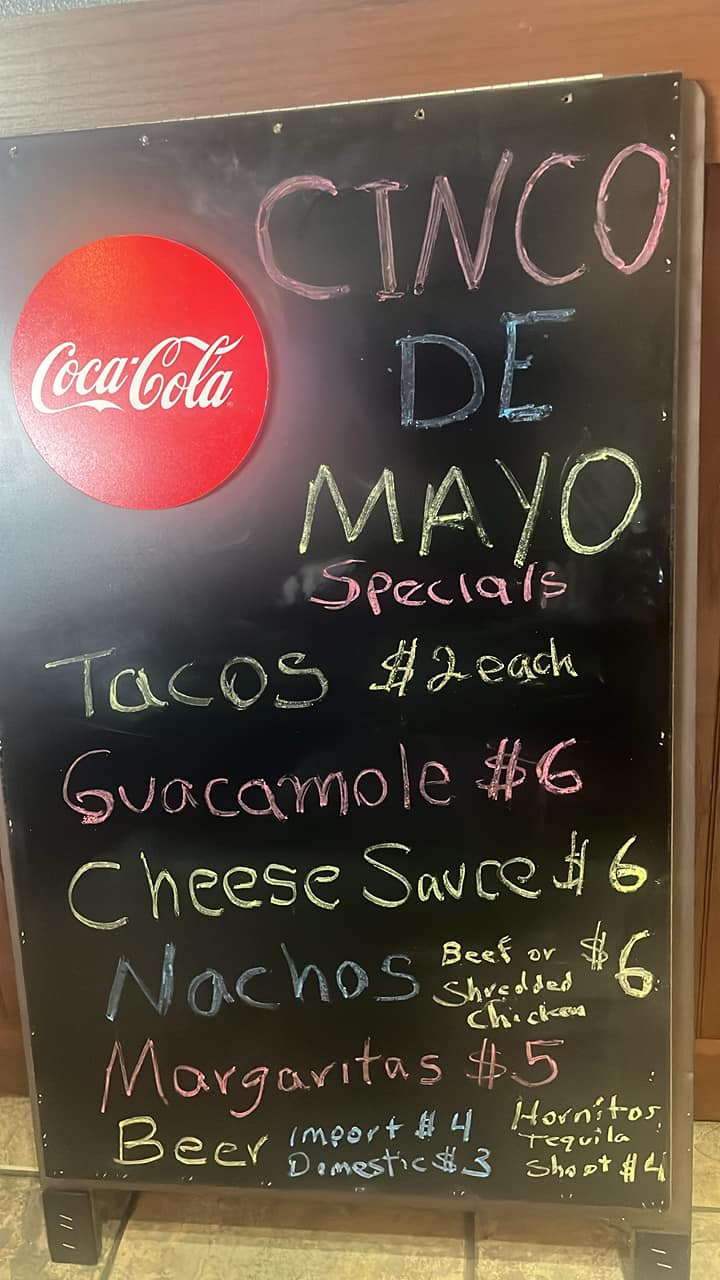 CINCO
Coca-Cola
DE
MAYO
Specials
Tacos $2 each
Guacamole $6
Cheese Sauce $6
Nachos Beef or Shredded Chicken $6
Margaritas $5
Beer Import $4 Domestic $3
Hornitos Tequila Shoot $4